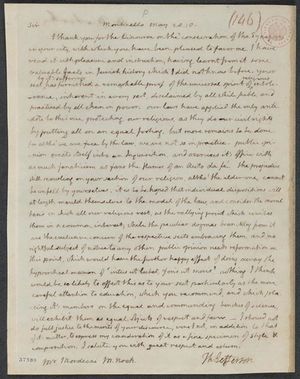 (146)
Sir Monticello May 28. 18.
I thank you for the Discourse on the consecration of the Synagogue
in your city, with which you have been pleased to favor me. I have
read it with pleasure and instruction, having learnt from it some
valuable facts in Jewish history which I did not know before. your
sect by it's sufferings has furnished a remarkable proof of the universal spirit of religious
intolerance, inherent in every sect, disclaimed by all while feeble, and
practised by all when in power. our laws have applied the only anti-
dote to this vice, protecting our religious, as they do our civil rights
by putting all on an equal footing. but more remains to be done.
for altho' we are free by the law, we are not so in practice. public opi-
nion erects itself into an Inquisition, and exercises it's office with
as much fanaticism as fans the flames of an Auto da fe. the prejudice
still scowling on your section of our religion, altho' the elder one, cannot
be unfelt by yourselves. it is to be hoped that individual dispositions will
at length mould themselves to the model of the law, and consider the moral
basis on which all our religions rest, as the rallying point which unites
them in a common interest; while the peculiar dogmas branching from it
are the exclusive concern of the respective sects embracing them, and no
rightful subject of notice to any other. public opinion needs reformation on
this point, which would have the further happy effect of doing away the
hypocritical maxim of 'intus ut lubet, foris ut moris'. nothing, I think
would be so likely to effect this as to your sect particularly as the more
careful attention to education, which you recommend, and which pla-
cing it's members on the equal and commanding benches of science,
will exhibit them as equal objects of respect and favor. I should not
do full justice to the merits of your discourse, were I not, in addition to that
of it's matter, to express my consideration of it as a fine specimen of style &
composition. I salute you with great respect and esteem.
Th: Jefferson
37989
Mr Mordecai M. Noah.